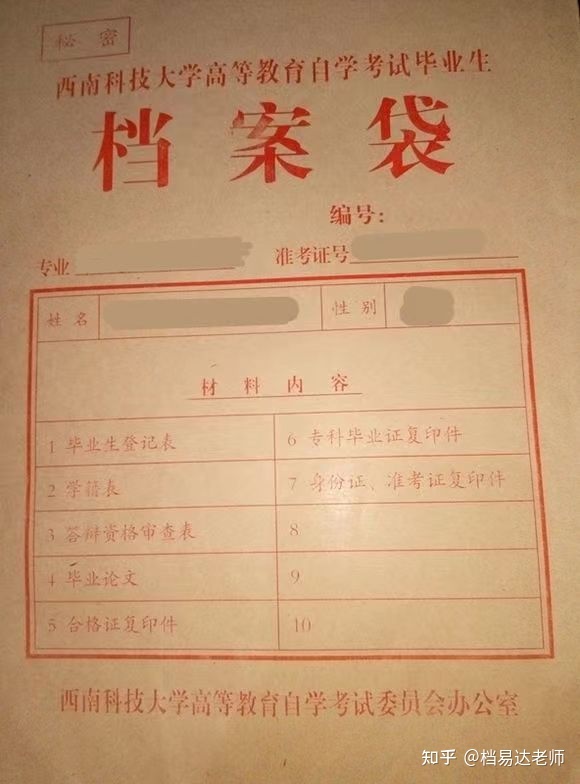 秘密
西南科技大学高等教育自学考试毕业生
档案袋
编号:
专业 准考证号
姓名 性别
材料内容
1 毕业生登记表
2 学籍表
3 答辩资格审查表
4 毕业论文
5 合格证复印件
6 专科毕业证复印件
7 身份证、准考证复印件
8
9
10
西南科技大学高等教育自学考试委员会办公室
知乎 @档易达老师